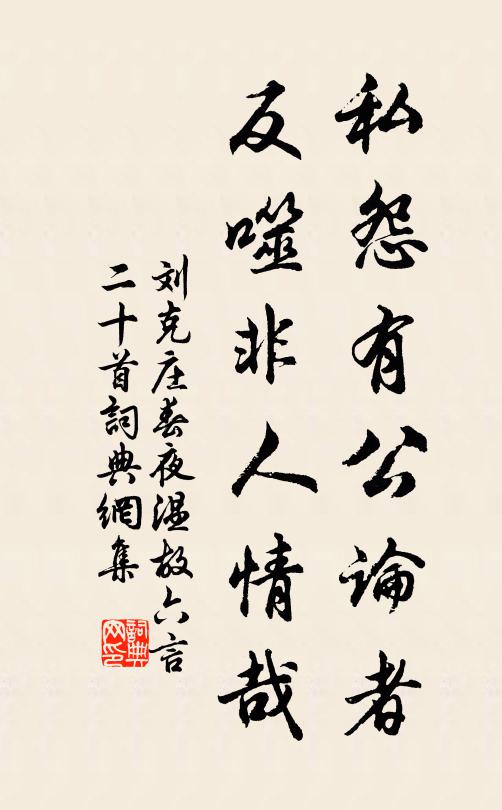 私怨有公論者
反噬非人情哉
刘克庄春夜温故六言
二十首詞典網集
詞典網印